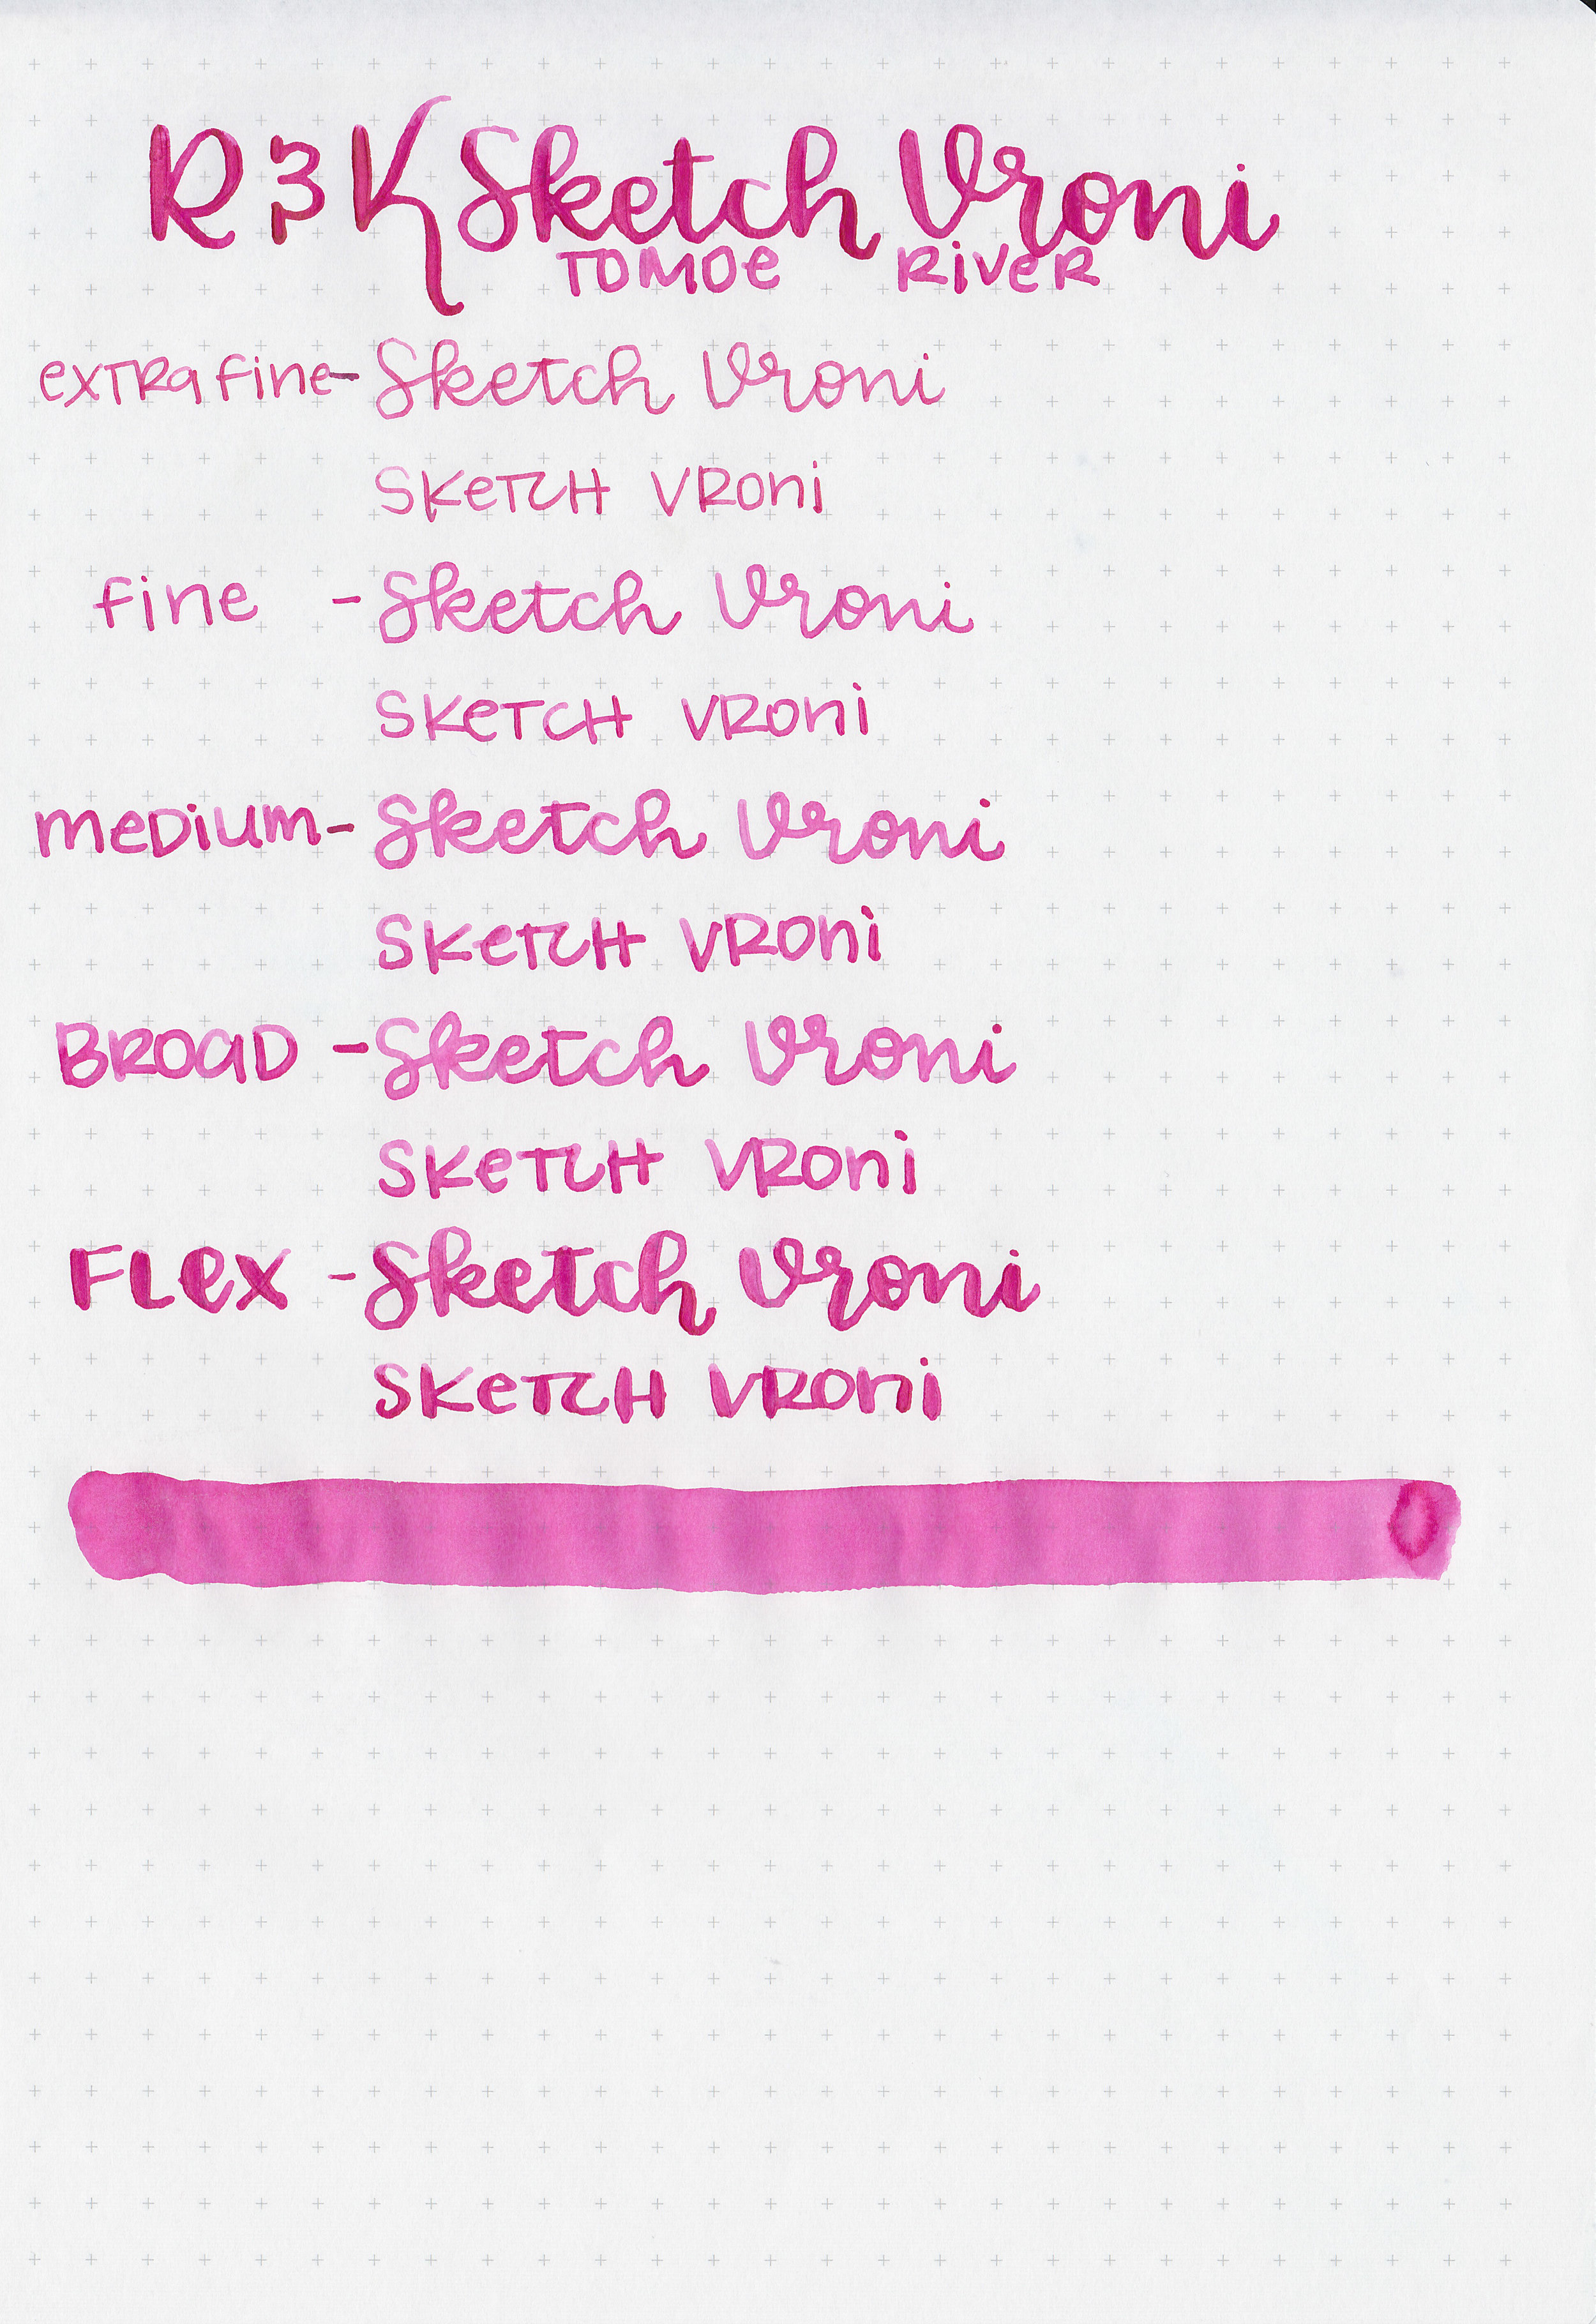 R & K Sketch Vroni
TOMOE RiVeR
exTRa fine - Sketch Vroni
SKeTCH VRoni
fine - Sketch Vroni
SKeTCH VRoni
meDium - Sketch Vroni
SKeTCH VRoni
BROaD - Sketch Vroni
SKeTCH VRoni
FLex - Sketch Vroni
SKeTCH VRoni